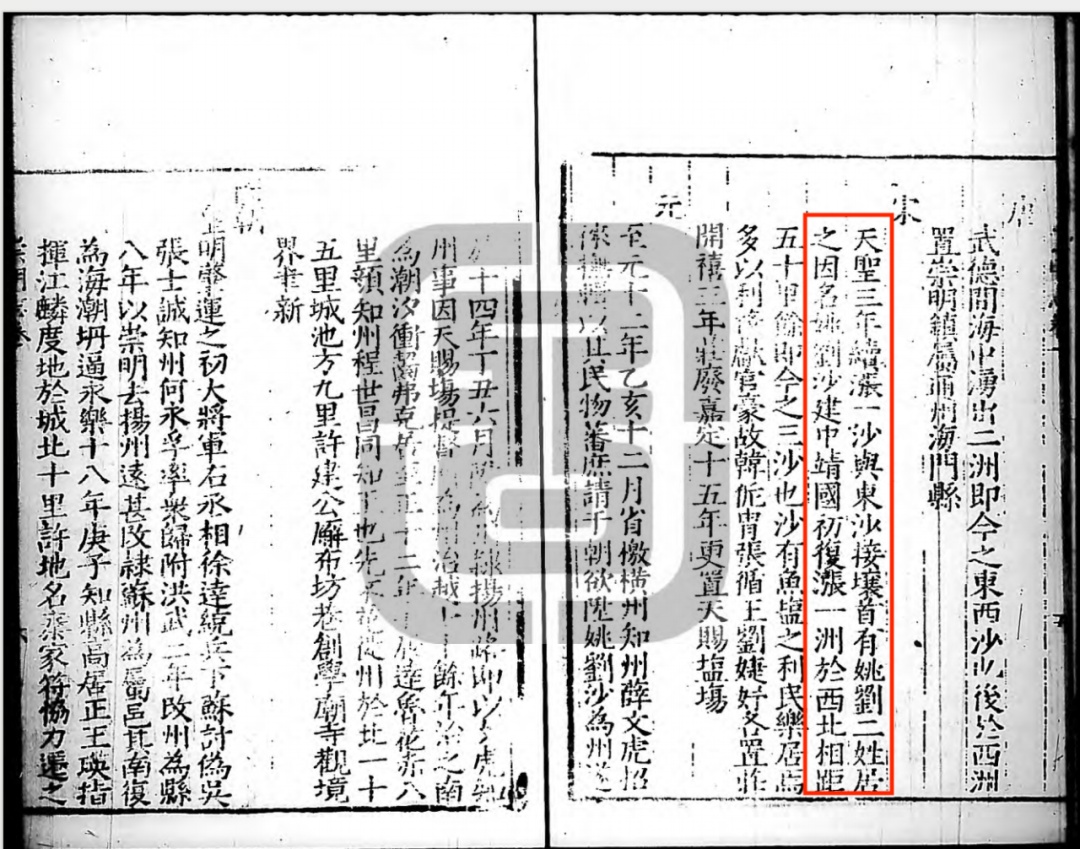 唐
武德間海中湧出二洲即今之東西沙也後於西洲
置崇明鎮屬通州海門縣
宋
天聖三年續漲一沙與東沙接壤首有姚劉二姓居
之因名姚劉沙建中靖國初復漲一洲於西北相距
五十里餘即今之三沙也沙有魚塩之利民樂居焉
多以利 官豪故韓侂胄張循王劉婕妤各置庄
開禧三年庄廢嘉定十五年更置天賜塩場
元
至元十二年乙亥十二月省檄橫州知州薛文虎招
以其民物蕃庶請于朝欲陞姚劉沙為州遂
十四年丁丑六月 揚州路 以文虎知
州事因天賜塲提督 為州治越 十餘年治之南
為潮汐衝齧弗克 至正十二年 達魯花赤八
里顏知州程世昌同知王也先不花徙州於北一十
五里城池方九里許建公廨布坊巷創學廟寺觀境
界聿新
皇明肇運之初大將軍右丞相徐達統兵下蘇討偽吳
張士誠知州何永孚率衆歸附洪武二年改州為縣
八年以崇明去揚州遠甚改隸蘇州為屬邑其南復
為海潮坍逼永樂十八年庚子知縣高居正王瑛指
揮江麟度地於城北十里許地名秦家符協力遷之